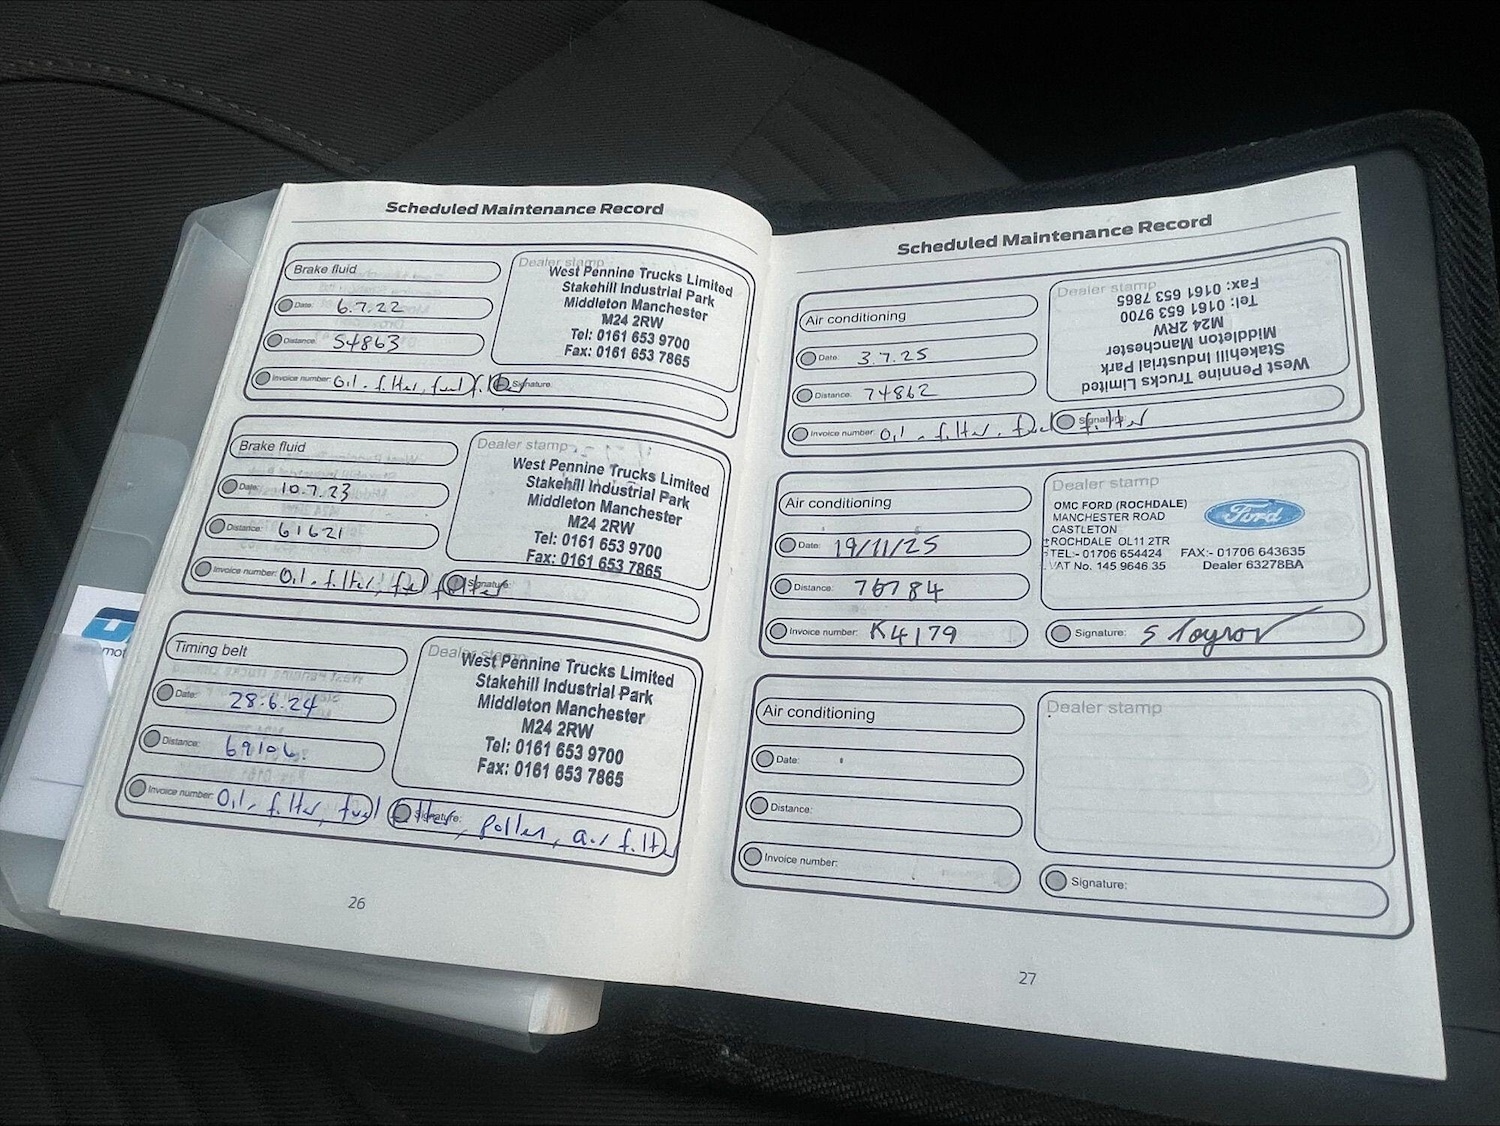 Scheduled Maintenance Record
Brake fluid
Date: 6.7.22
Distance: 54863
Invoice number: Oil. filter, fuel filter
Signature:
Dealer stamp
West Pennine Trucks Limited
Stakehill Industrial Park
Middleton Manchester
M24 2RW
Tel: 0161 653 9700
Fax: 0161 653 7865
Brake fluid
Date: 10.7.23
Distance: 61621
Invoice number: Oil. filter, fuel filter
Signature:
Dealer stamp
West Pennine Trucks Limited
Stakehill Industrial Park
Middleton Manchester
M24 2RW
Tel: 0161 653 9700
Fax: 0161 653 7865
Timing belt
Date: 28.6.24
Distance: 69106.
Invoice number: Oil, filter, fuel filter, pollen, air filter
Signature:
Dealer stamp
West Pennine Trucks Limited
Stakehill Industrial Park
Middleton Manchester
M24 2RW
Tel: 0161 653 9700
Fax: 0161 653 7865
26
Scheduled Maintenance Record
Air conditioning
Date: 3.7.25
Distance: 74862
Invoice number: Oil. filter. fuel filter
Signature:
Dealer stamp
West Pennine Trucks Limited
Stakehill Industrial Park
Middleton Manchester
M24 2RW
Tel: 0161 653 9700
Fax: 0161 653 7865
Air conditioning
Date: 19/11/25
Distance: 76784
Invoice number: K4179
Dealer stamp
OMC FORD (ROCHDALE)
MANCHESTER ROAD
CASTLETON
ROCHDALE OL11 2TR
TEL:- 01706 654424 FAX:- 01706 643635
VAT No. 145 9646 35 Dealer 63278BA
Ford
Signature: S
Air conditioning
Date:
Distance:
Invoice number:
Dealer stamp
Signature:
27